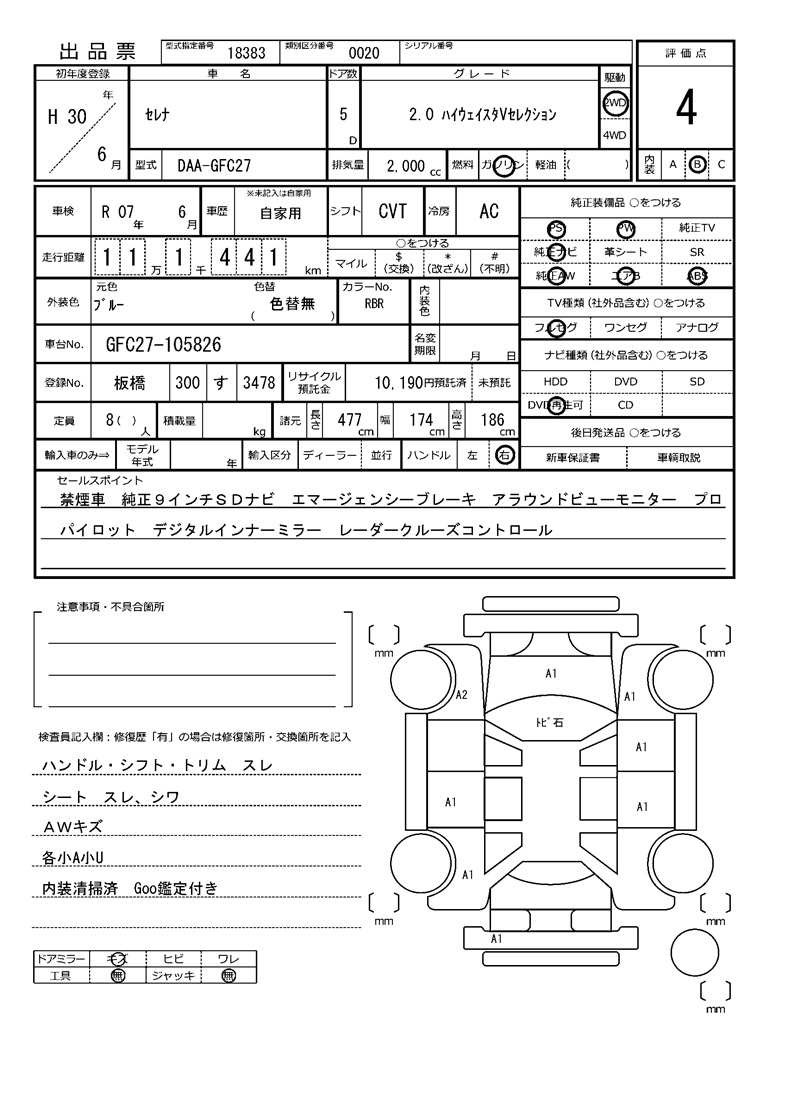 出品票 型式指定番号 18383 類別区分番号 0020 シリアル番号
評価点
4
内装 A B C
初年度登録 車名 ドア数 グレード 駆動
H 30 年 6 月 セレナ 5 D 2.0 ハイウェイスタVセレクション 2WD
4WD
型式 DAA-GFC27 排気量 2.000 cc 燃料 ガソリン 軽油 ( )
車検 R 07 年 6 月 車歴 ※未記入は自家用 自家用 シフト CVT 冷房 AC
走行距離 1 1 万 1 千 4 4 1 km ○をつける
マイル $ (交換) * (改ざん) # (不明)
外装色 元色 ブルー 色替 ( 色替無 ) カラーNo. RBR 内装色
車台No. GFC27-105826 名変期限 月 日
登録No. 板橋 300 す 3478 リサイクル預託金 10,190円預託済 未預託
定員 8( ) 人 積載量 kg 諸元 長さ 477 cm 幅 174 cm 高さ 186 cm
輸入車のみ⇒ モデル年式 年 輸入区分 ディーラー 並行 ハンドル 左 右
純正装備品 ○をつける
PS PW 純正TV
純正ナビ 革シート SR
純正AW エアB ABS
TV種類(社外品含む) ○をつける
フルセグ ワンセグ アナログ
ナビ種類(社外品含む) ○をつける
HDD DVD SD
DVD再生可 CD
後日発送品 ○をつける
新車保証書 車輌取説
セールスポイント
禁煙車 純正９インチＳＤナビ エマージェンシーブレーキ アラウンドビューモニター プロ
パイロット デジタルインナーミラー レーダークルーズコントロール
注意事項・不具合箇所
検査員記入欄：修復歴「有」の場合は修復箇所・交換箇所を記入
ハンドル・シフト・トリム スレ
シート スレ、シワ
ＡＷキズ
各小A小U
内装清掃済 Goo鑑定付き
ドアミラー キズ ヒビ ワレ
工具 無 ジャッキ 無
mm mm
A1
A2 A1
ﾄﾋﾞ石
A1
A1 A1
A1
mm mm
A1
mm